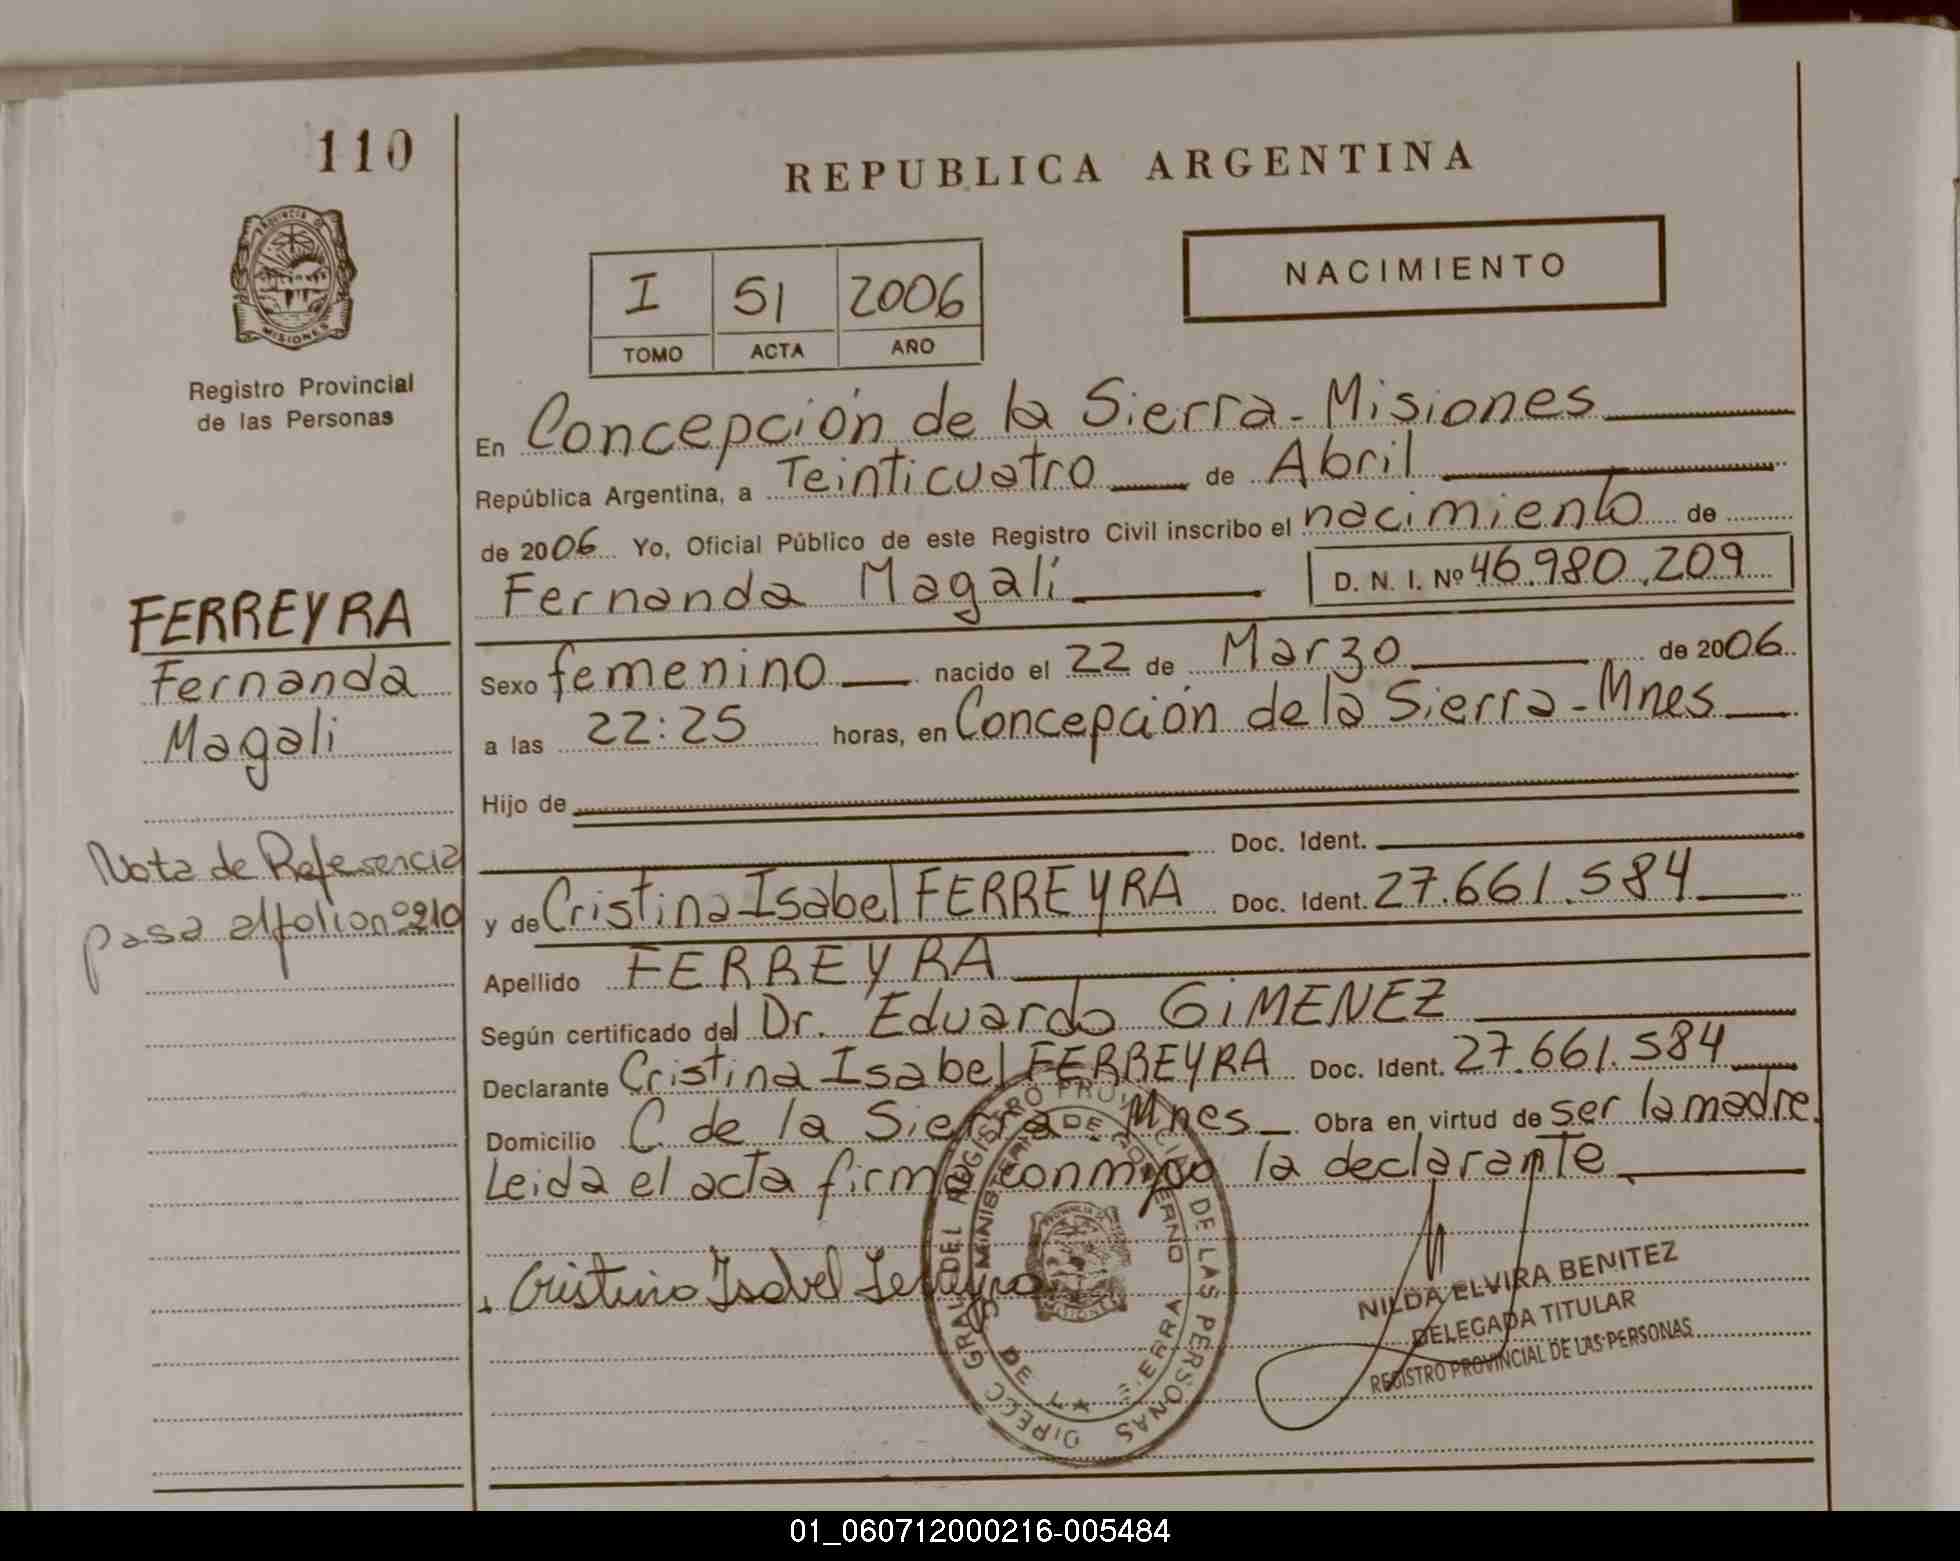 110
REPUBLICA ARGENTINA
PROVINCIA DE
MISIONES
Registro Provincial
de las Personas
I 51 2006
TOMO ACTA AÑO
NACIMIENTO
En Concepción de la Sierra - Misiones
República Argentina, a Teinticuatro de Abril
de 2006 Yo, Oficial Público de este Registro Civil inscribo el nacimiento de
Fernanda Magalí D. N. I. Nº 46.980.209
FERREYRA
Fernanda
Magali
Sexo femenino nacido el 22 de Marzo de 2006
a las 22:25 horas, en Concepción de la Sierra - Mnes
Hijo de
Doc. Ident.
Nota de Referencia
pasa al folio nº 210
y de Cristina Isabel FERREYRA Doc. Ident. 27.661.584
Apellido FERREYRA
Según certificado del Dr. Eduardo GiMENEZ
Declarante Cristina Isabel FERREYRA Doc. Ident. 27.661.584
Domicilio C. de la Sierra Mnes Obra en virtud de ser la madre.
Leida el acta firma conmigo la declarante
Cristina Isabel Ferreyra
DIRECC GRAL DEL REGISTRO PROVINCIAL DE LAS PERSONAS
MINISTERIO DE GOBIERNO
DE LA SIERRA
NILDA ELVIRA BENITEZ
DELEGADA TITULAR
REGISTRO PROVINCIAL DE LAS PERSONAS
01_060712000216-005484